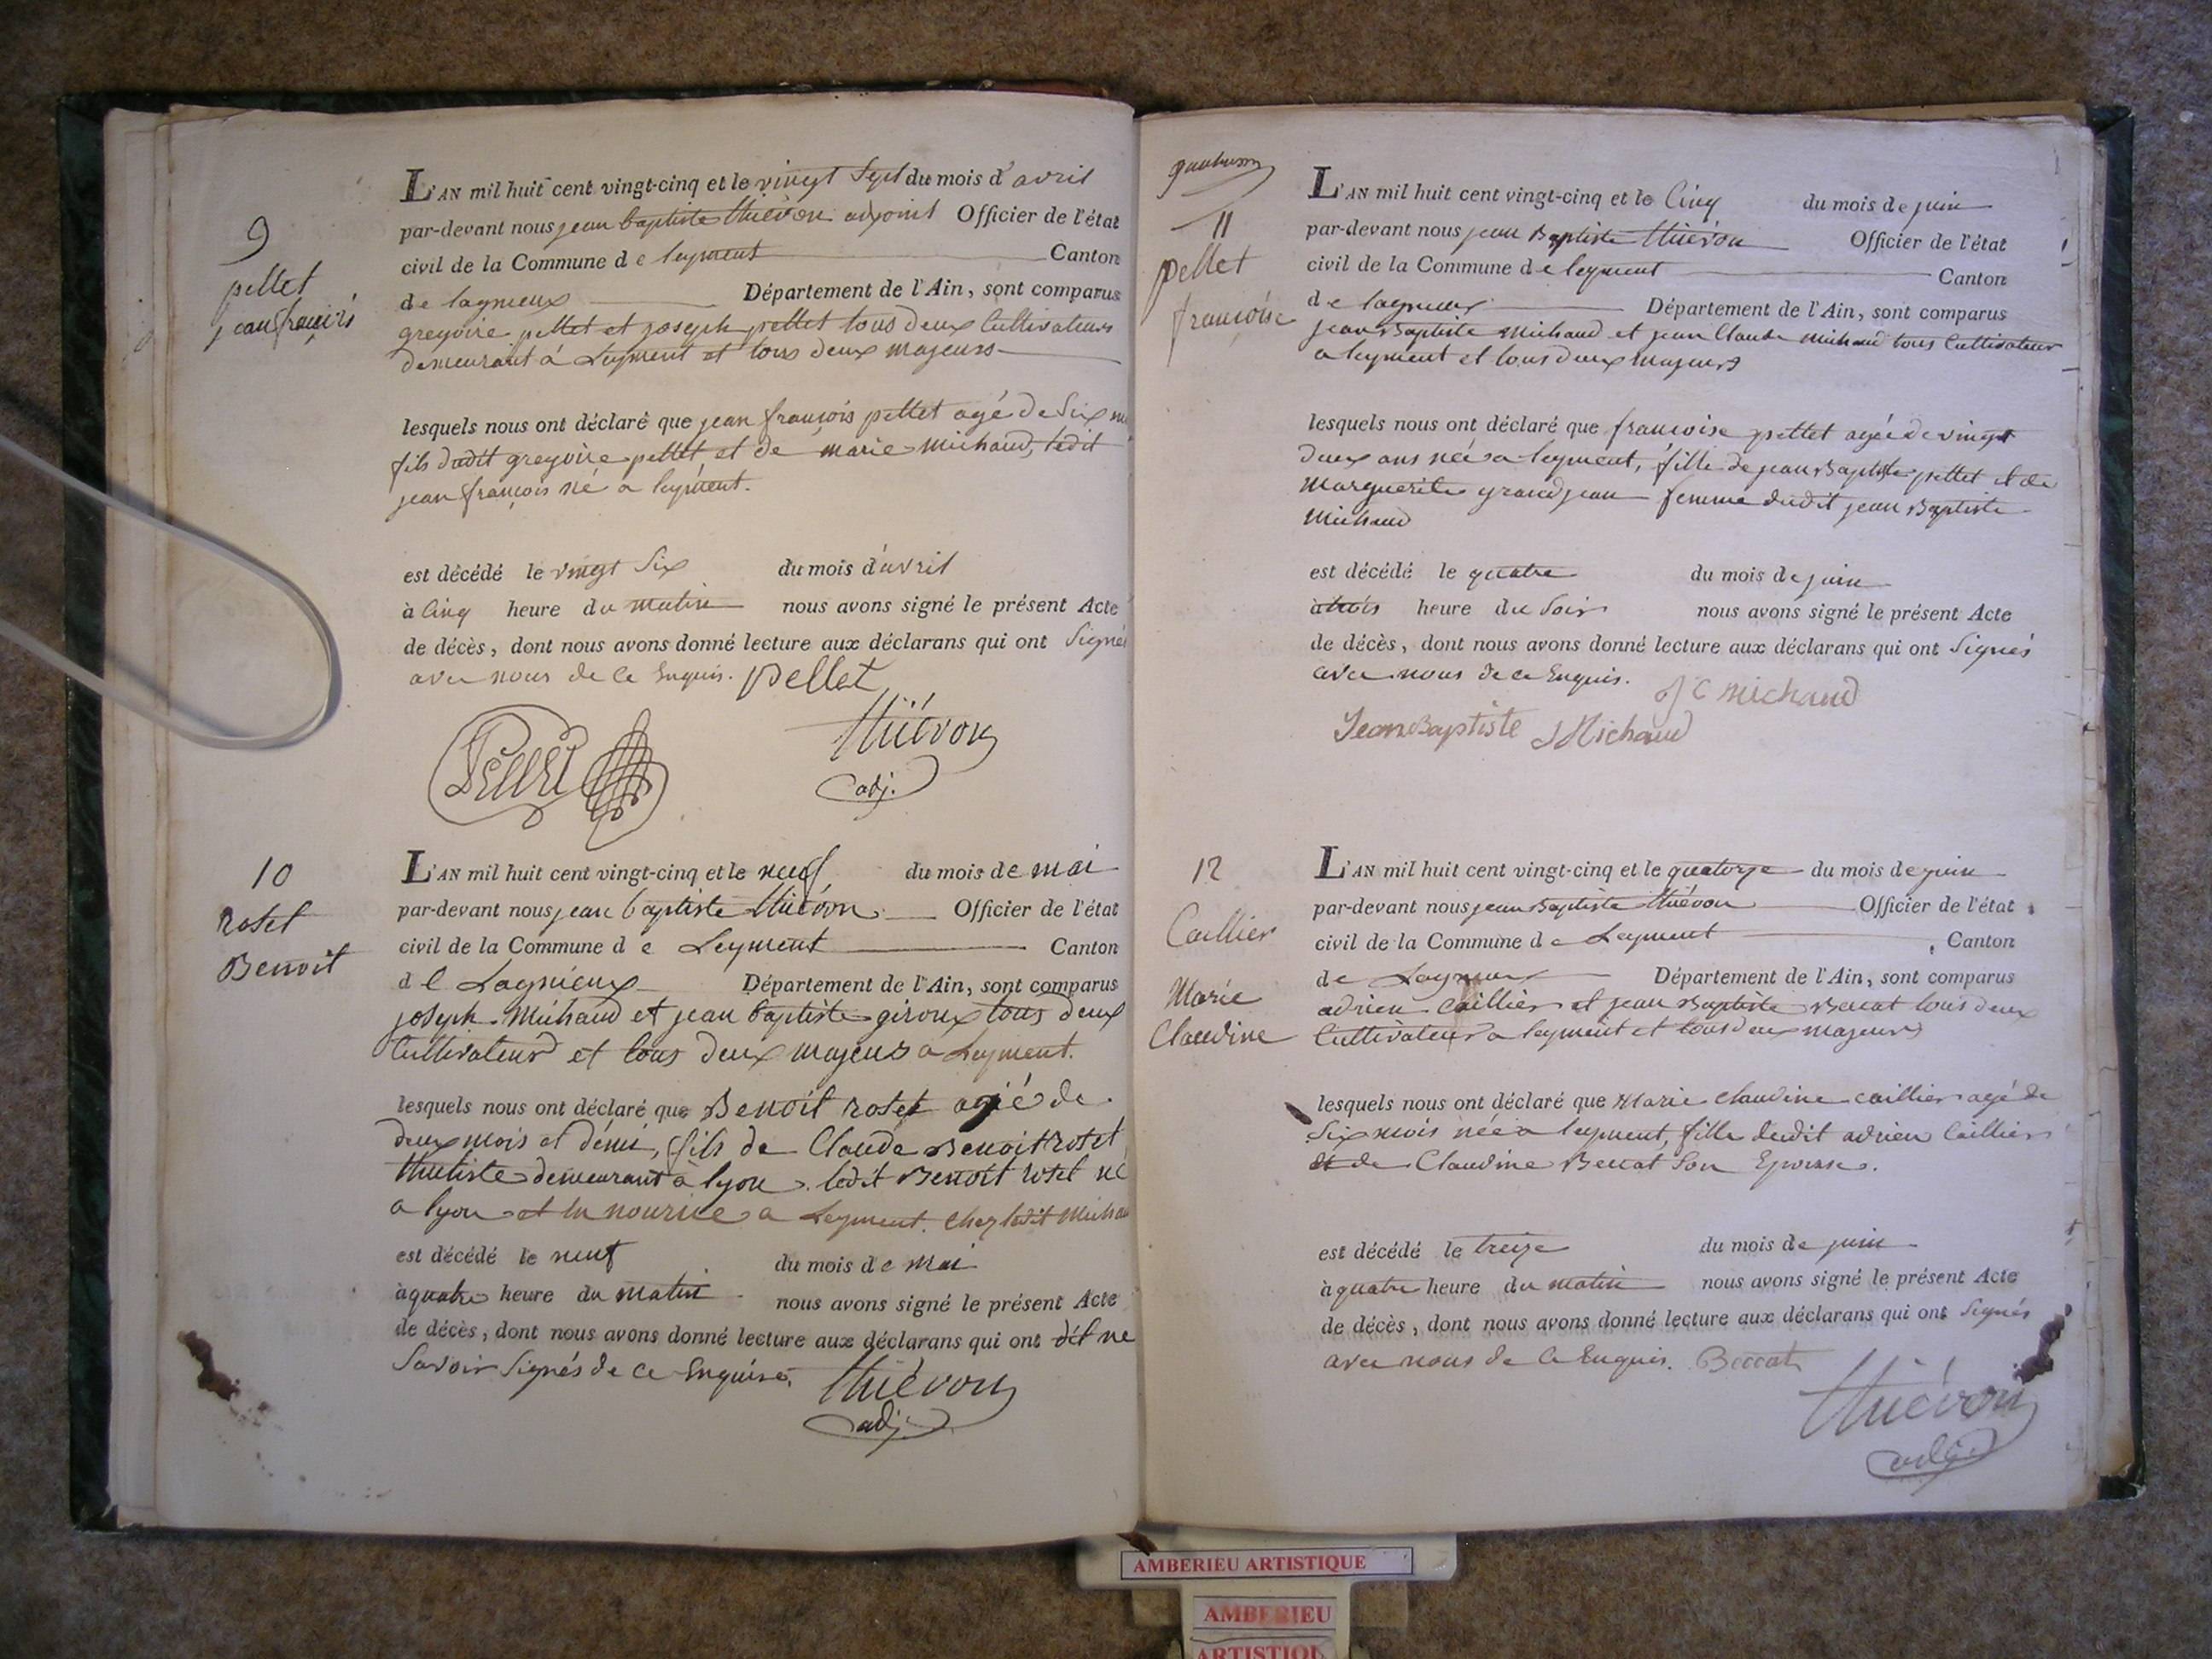 9
pellet
jean françois
L'AN mil huit cent vingt-cinq et le vingt Sept du mois d'avril
par-devant nous jean baptiste thiévon adjoint Officier de l'état
civil de la Commune de leyment Canton
de lagnieux Département de l'Ain, sont comparus
gregoire pellet et joseph pellet tous deux Cultivateurs
demeurant à Leyment et tous deux majeurs
lesquels nous ont déclaré que jean françois pellet agé de Six
fils dudit gregoire pellet et de marie michaud, ledit
jean françois né a leyment.
est décédé le vingt Six du mois d'avril
à Cinq heure du matin nous avons signé le présent Acte
de décès, dont nous avons donné lecture aux déclarans qui ont Signés
avec nous de ce Enquis. pellet
thiévon
Pellet
adj.
10
rotet
Benoit
L'AN mil huit cent vingt-cinq et le neuf du mois de mai
par-devant nous jean baptiste thiévon Officier de l'état
civil de la Commune de Leyment Canton
de Lagnieux Département de l'Ain, sont comparus
joseph Michaud et jean baptiste giroux tous deux
Cultivateurs et tous deux majeurs a Leyment.
lesquels nous ont déclaré que Benoit rotet agé de
deux mois et demi, fils de Claude Benoit rotet
demeurant à lyon. ledit Benoit rotet né
a lyon et en nourice a Leyment. chez ledit Michau
est décédé le neuf du mois de mai
à quatre heure du matin nous avons signé le présent Acte
de décès, dont nous avons donné lecture aux déclarans qui ont dit ne
Savoir Signés de ce Enquis. thiévon
adj.
11
pellet
françoise
L'AN mil huit cent vingt-cinq et le Cinq du mois de juin
par-devant nous jean Baptiste thiévon Officier de l'état
civil de la Commune de leyment Canton
de lagnieux Département de l'Ain, sont comparus
jean Baptiste Michaud et jean Claude michaud tous Cultivateur
a leyment et tous deux majeurs
lesquels nous ont déclaré que francoise pellet agée de vingt
deux ans née a leyment, fille de jean Baptiste pellet et de
Marguerite grandjean femme dudit jean Baptiste
Michaud
est décédé le quatre du mois de juin
à trois heure du Soir nous avons signé le présent Acte
de décès, dont nous avons donné lecture aux déclarans qui ont Signés
avec nous de ce Enquis. J C michaud
Jean Baptiste Michaud
12
Caillier
Marie
Claudine
L'AN mil huit cent vingt-cinq et le quatorze du mois de juin
par-devant nous jean Baptiste thiévon Officier de l'état
civil de la Commune de Leyment Canton
de Lagnieux Département de l'Ain, sont comparus
adrien Caillier et jean Baptiste Beccat tous deux
Cultivateurs a leyment et tous deux majeurs
lesquels nous ont déclaré que Marie Claudine caillier agé de
Six mois née a leyment, fille dudit adrien Caillier
et de Claudine Beccat Son Epouse.
est décédé le treize du mois de juin
à quatre heure du matin nous avons signé le présent Acte
de décès, dont nous avons donné lecture aux déclarans qui ont Signés
avec nous de ce Enquis. Beccat
thiévon
adj.
AMBERIEU ARTISTIQUE
AMBERIEU
ARTISTIQU